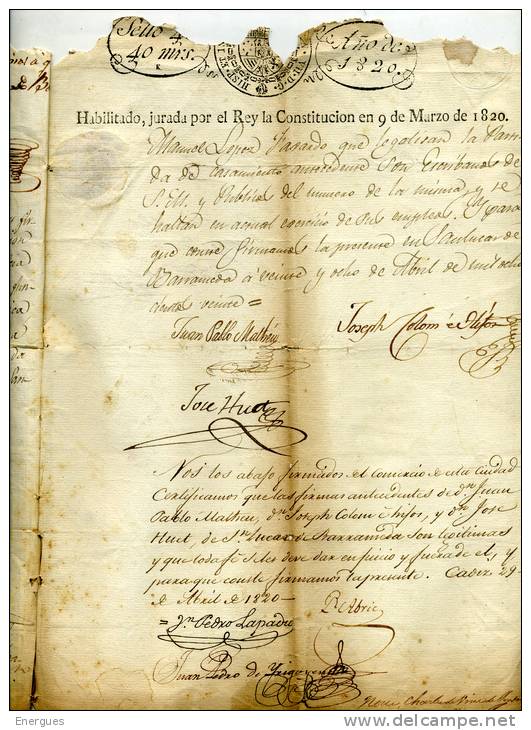 Sello 4
40 mrs.
HISP
Año de
1820.
Habilitado, jurada por el Rey la Constitucion en 9 de Marzo de 1820.
Manuel Lopez Faxardo que legalisan la Parti
da de Casamiento antecedente son Escribanos de
S. M. y Publicos del numero de la misma, y se
hallan en actual exercicio de sus empleos. Y para
que conste firmamos la presente en Sanlucar de
Barrameda à veinte y ocho de Abril de mil ocho
cientos veinte =
Juan Pablo Matheu
Joseph Colom é Hijos
Jose Huet
Nos los abajo firmados del comercio de esta Ciudad
Certificamos que las firmas antecedentes de dn. Juan
Pablo Matheu, dn. Joseph Colom é hijos, y dn. Jose
Huet, de Sn. Lucar de Barrameda son legitimas
y que toda fé se les deve dar en juicio y fuera de el, y
para que conste firmamos la presente. Cadiz 29
de Abril de 1820
Jn. Pedro Lapadu
Juan Pedro de
Nous, Charles de
Energues
www.delcampe.net